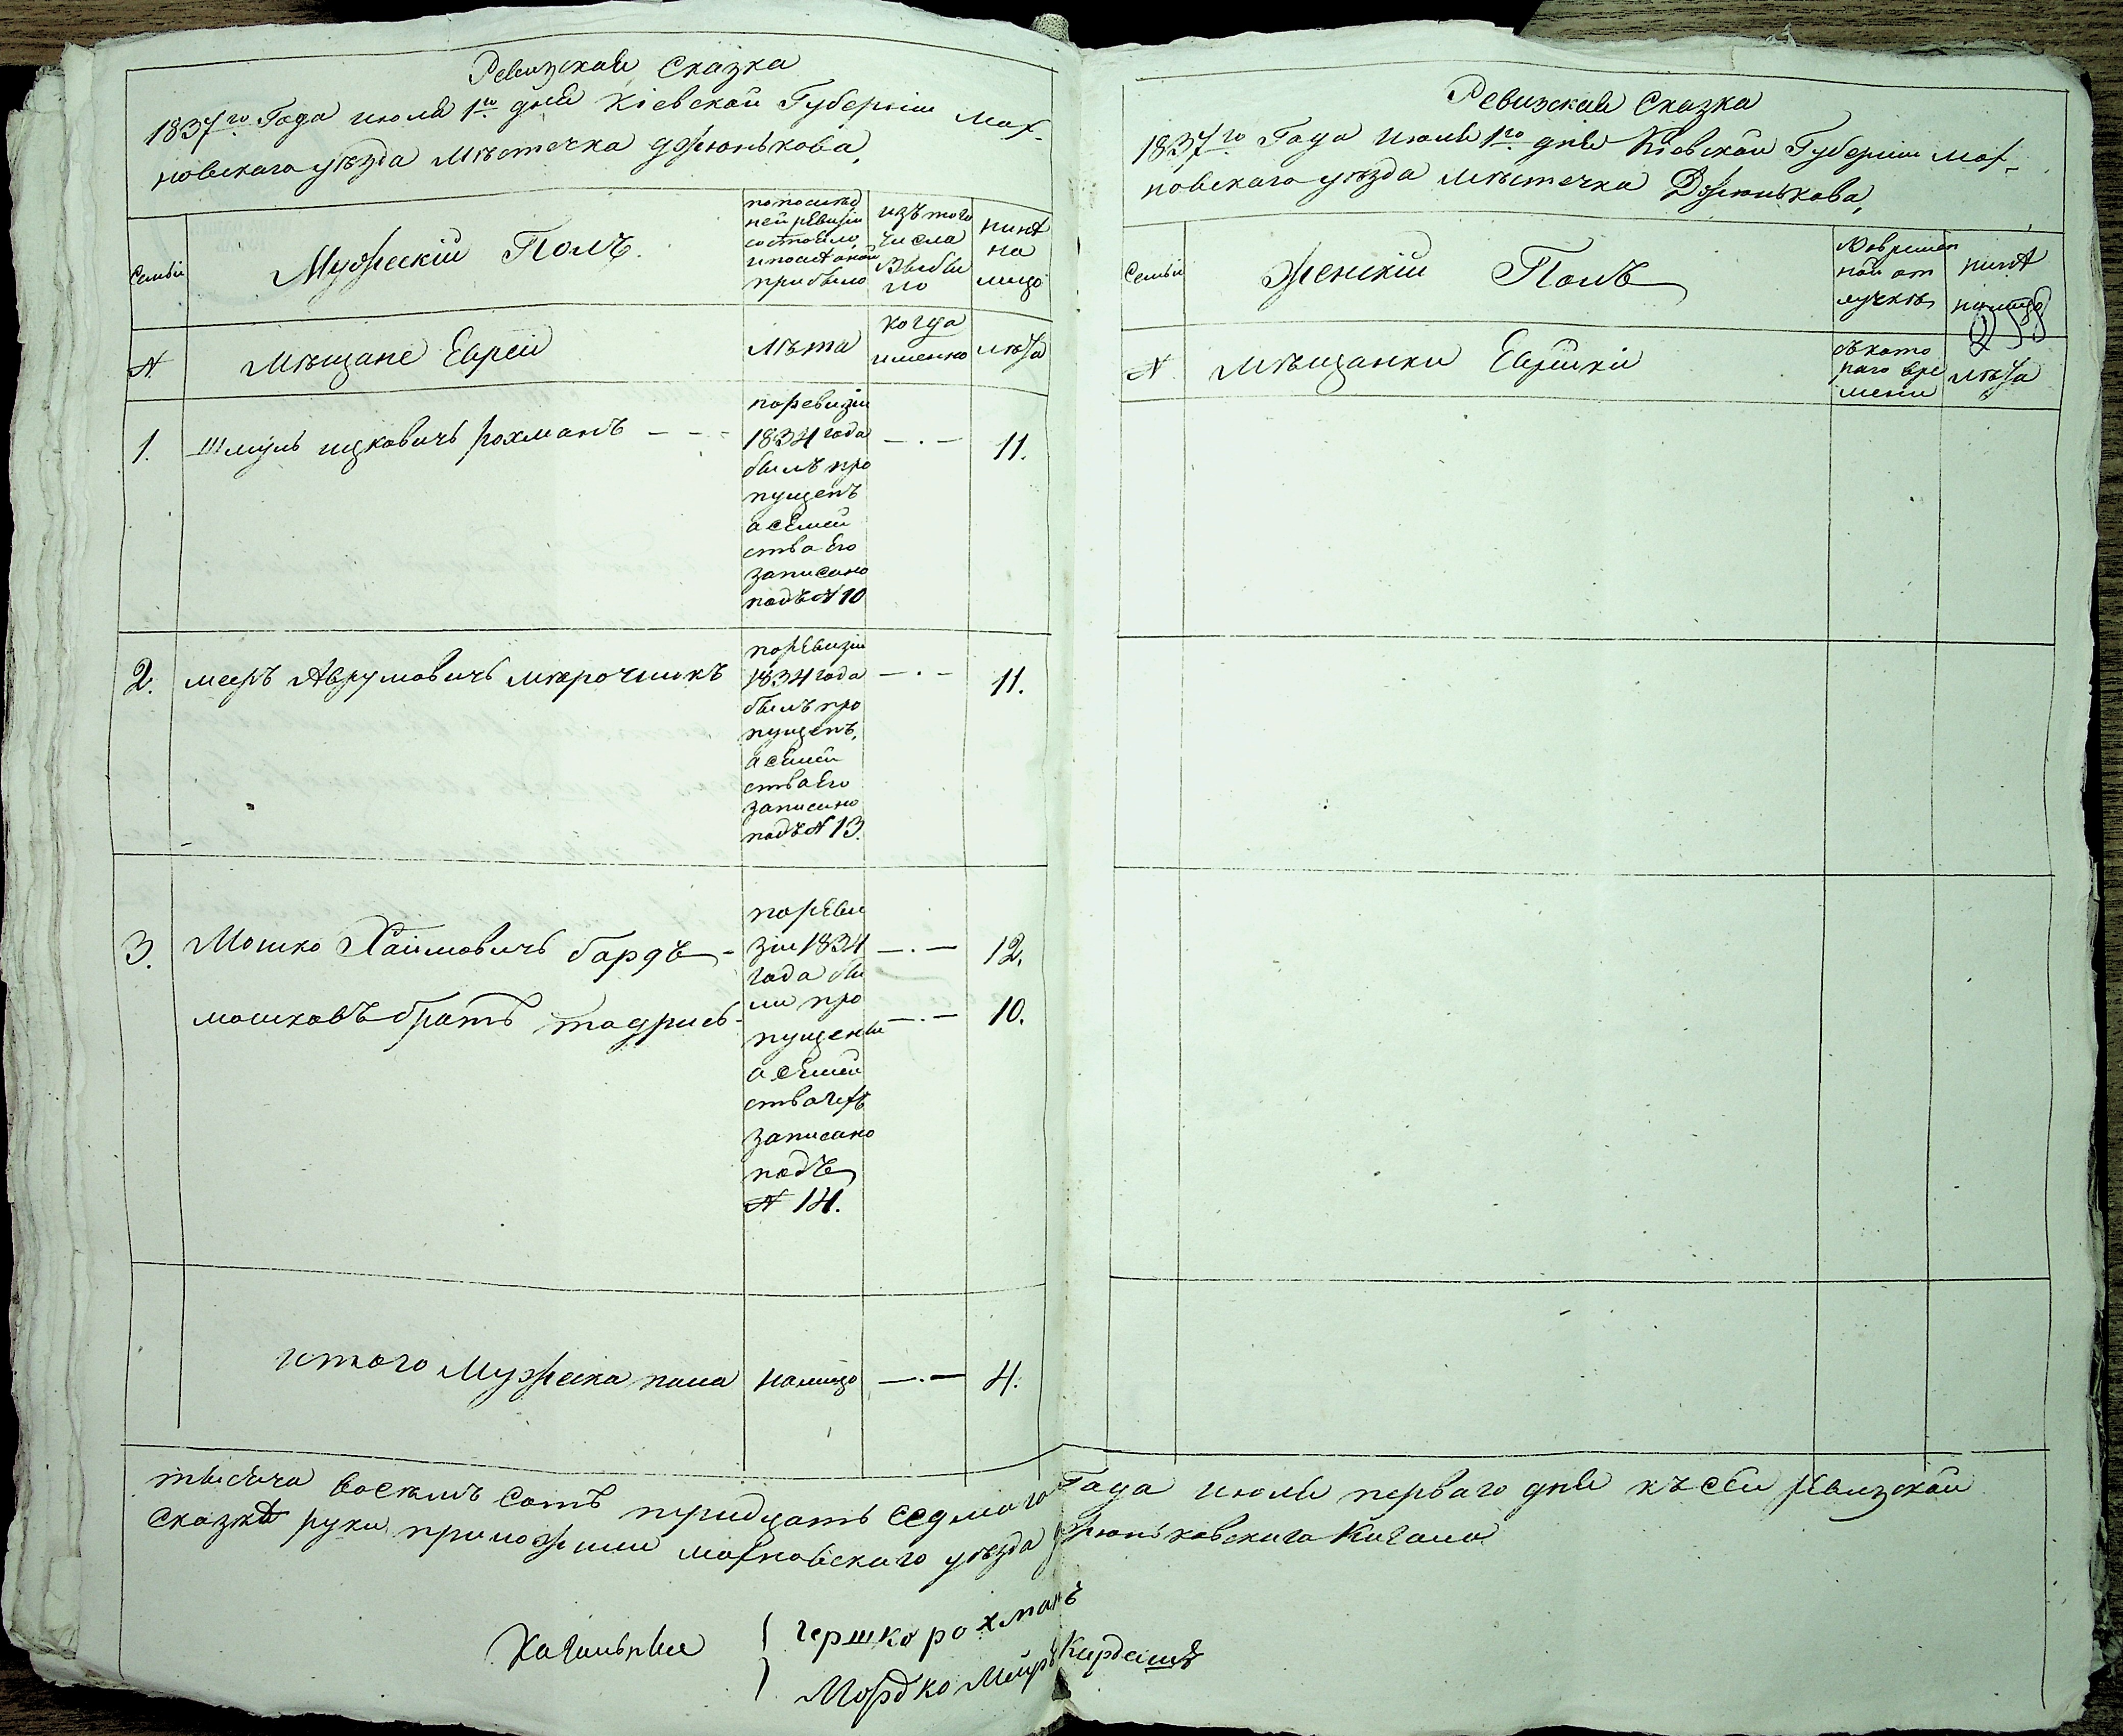 Ревизская Сказка
1837го Года июля 1го дня Кіевской Губерніи мах-
новскаго уѣзда мѣстечка дзюнькова,
Семьи
Мужескій Полъ.
по послѣд
ней ревизіи
состояло
и послѣ оной
прибыло
изъ того
числа
выбы
ло
нынѣ
на
лицо
N
мѣщане Евреи
лѣта
когда
именно
лѣта
1.
Шмуль ицковичъ рохманъ - - -
поревизіи
1834 года
былъ про
пущенъ
а семей
ства Его
записано
подъ N 10
—.—
11.
2.
меръ Аврумовичъ мирочникъ
поревизіи
1834 года
былъ про
пущенъ,
а семей
ства Его
записано
подъ N 13.
—.—
11.
3.
Мошко Хаимовичъ бардъ -
мошковъ братъ тодрисъ -
пореви
зіи 1834
года бы
ли про
пущены
а семей
ства ихъ
записано
подъ
N 14.
—.—
12.
—.—
10.
итого Мужеска пола
налицо
—.—
4.
Ревизская Сказка
1837го Года Июля 1го дня Кіевской Губерніи мах-
новскаго уѣзда мѣстечка Дзюнькова,
Семьи
Женскій Полъ
Во времен
ной от
лучкѣ
нынѣ
налицо
N
мѣщанки Еврейки
съ кото
раго вре
мени
лѣта
тысяча восемь сотъ тридцать седмаго Года июля перваго дня къ сей ревизской
сказкѣ руки приложили махновскаго уѣзда дзюньковскаго Кагала
Кагальные
гершко рохманъ
Мордко Меиръ Кардашъ